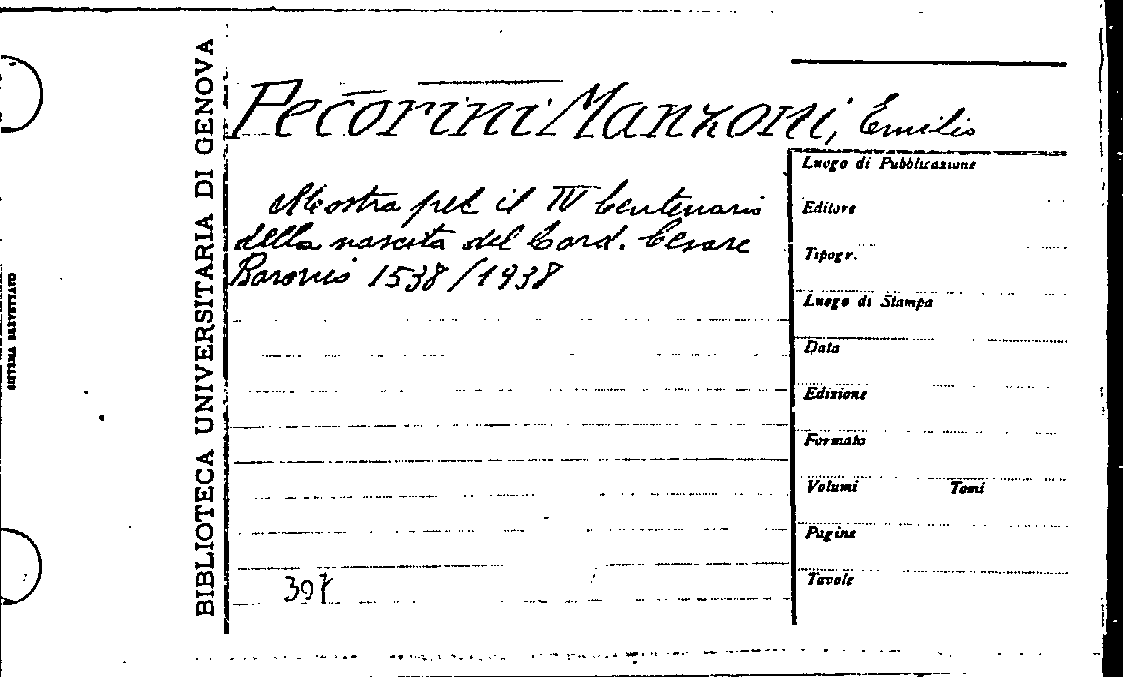 BIBLIOTECA UNIVERSITARIA DI GENOVA
SISTEMA BREVETTATO
Pecorini Manzoni, Emilio
Mostra pel il IV Centenario
della nascita del Card. Cesare
Baronio 1538/1938
397
Luogo di Pubblicazione
Editore
Tipogr.
Luogo di Stampa
Data
Edizione
Formato
Volumi Tomi
Pagine
Tavole